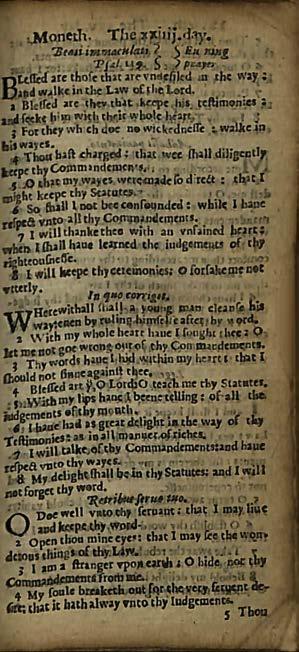 Moneth. The xxiiij. day.
Beati immaculati. Euening
Psal. 119. prayer
BLessed are those that are vndefiled in the way:
and walke in the Law of the Lord.
2 Blessed are they that keepe his testimonies:
and seeke him with their whole heart.
3 For they which doe no wickednesse: walke in
his wayes.
4 Thou hast charged: that wee shall diligently
keepe thy Commandements.
5 O that my wayes were made so direct: that I
might keepe thy Statutes.
6 So shall I not bee confounded: while I haue
respect vnto all thy Commandements.
7 I will thanke thee with an vnfained heart:
when I shall haue learned the iudgements of thy
righteousnesse.
8 I will keepe thy ceremonies: O forsake me not
vtterly.
In quo corriget.
WHerewithall shall a young man cleanse his
way: euen by ruling himselfe after thy word.
2 With my whole heart haue I sought thee: O
let me not goe wrong out of thy Commandements.
3 Thy words haue I hid within my heart: that I
should not sinne against thee.
4 Blessed art thou, O Lord: O teach me thy Statutes.
5 With my lips haue I beene telling: of all the
iudgements of thy mouth.
6 I haue had as great delight in the way of thy
Testimonies: as in all manner of riches.
7 I will talke of thy Commandements: and haue
respect vnto thy wayes.
8 My delight shall be in thy Statutes: and I will
not forget thy word.
Retribue seruo tuo.
O Doe well vnto thy seruant: that I may liue
and keepe thy word.
2 Open thou mine eyes: that I may see the won-
derous things of thy Law.
3 I am a stranger vpon earth: O hide not thy
Commandements from me.
4 My soule breaketh out for the very feruent de-
sire: that it hath alway vnto thy Iudgements.
5 Thou